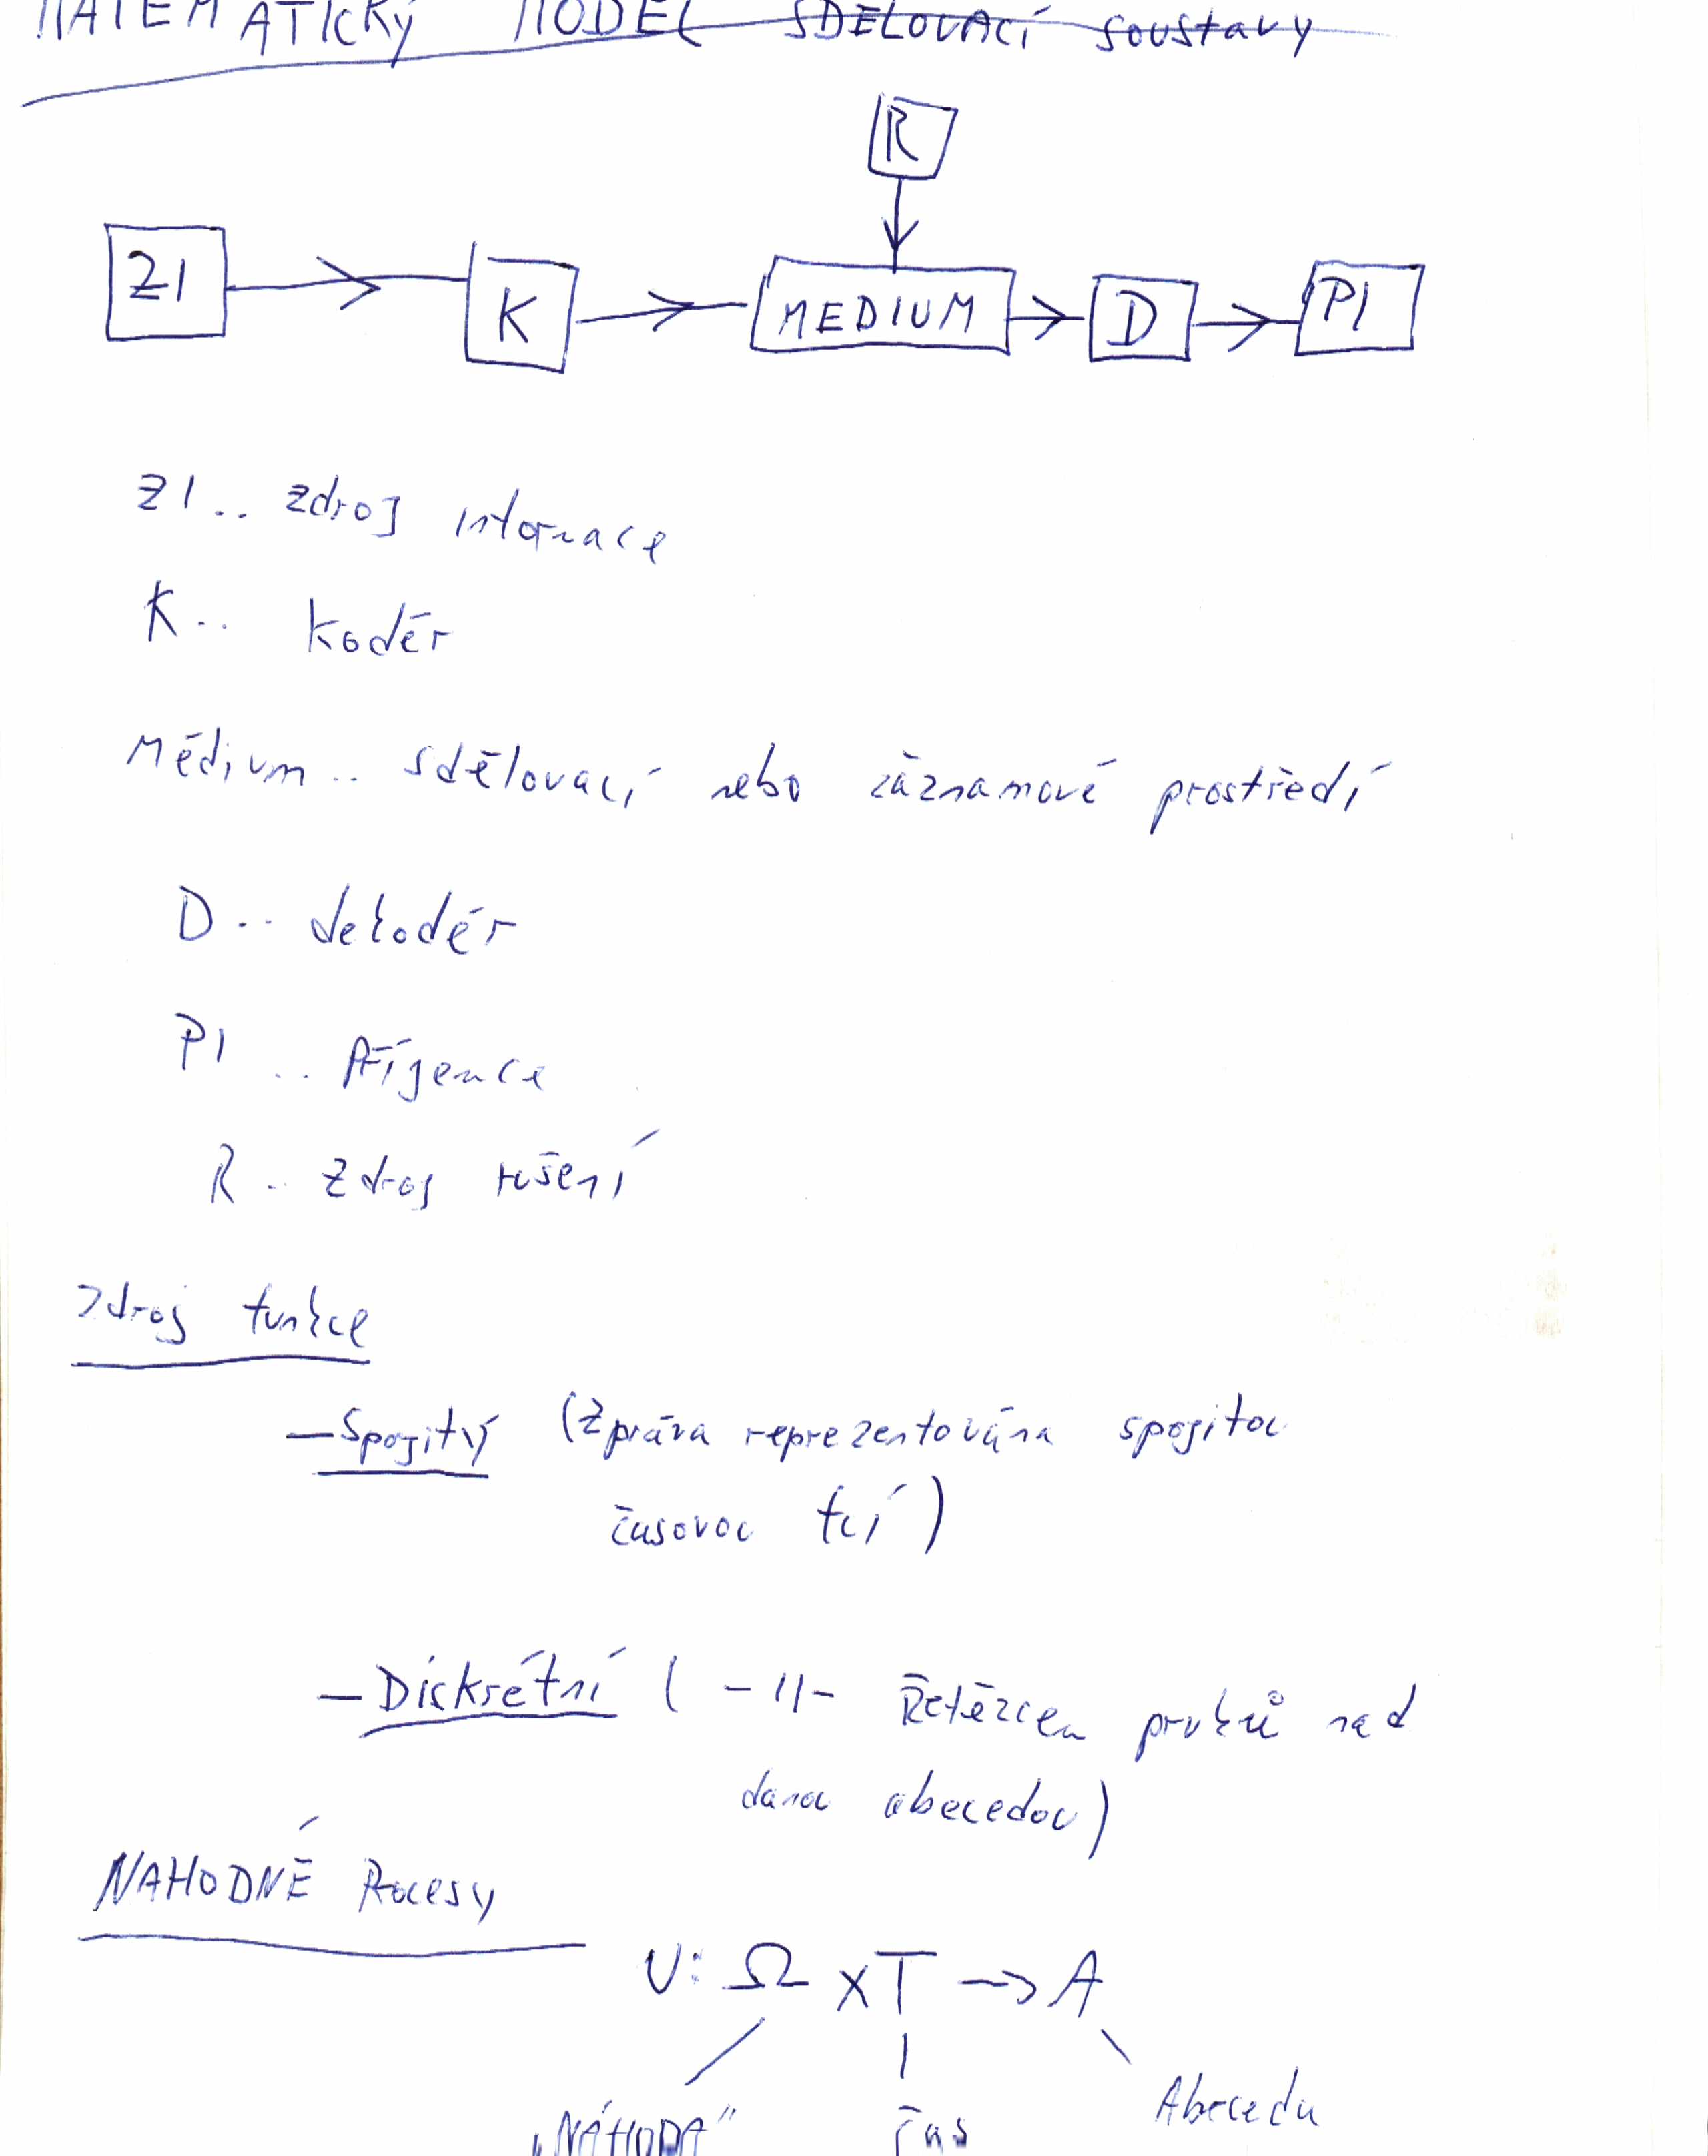 MATEMATICKÝ MODEL SDĚLOVACÍ soustavy
R
ZI K MEDIUM D PI
ZI .. zdroj informace
K .. kodér
Médium .. sdělovací nebo záznamové prostředí
D .. dekodér
PI .. Příjemce
R .. zdroj rušení
Zdroj funkce
— Spojitý (Zpráva reprezentována spojitou
časovou fcí)
— Diskrétní ( -11- Řetězcem prvků nad
danou abecedou)
NÁHODNÉ Procesy
U: Ω x T → A
„NÁHODA" čas Abeceda